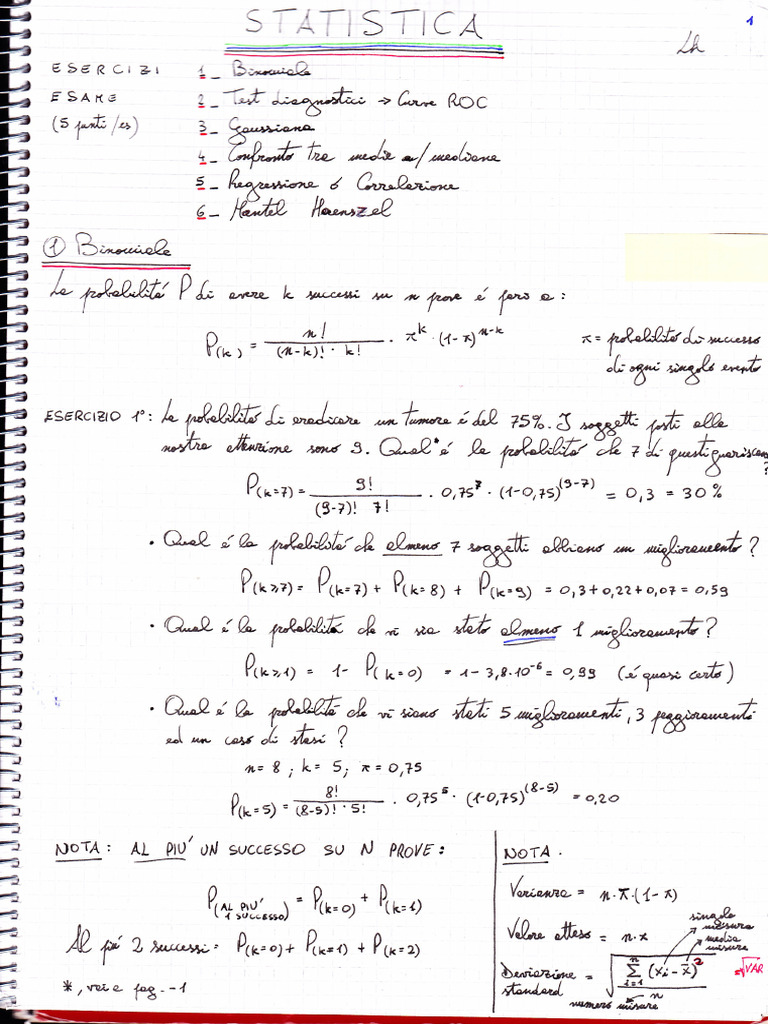 STATISTICA
1
Lh
ESERCIZI
ESAME
(5 punti/es)
1_ Binomiale
2_ Test diagnostici → Curve ROC
3_ Gaussiana
4_ Confronto tra medie o/mediane
5_ Regressione o Correlazione
6_ Mantel Haenszel
① Binomiale
La probabilitá P di avere k successi su n prove é pari a:
P(k) = n! / (n-k)! · k! · π^k · (1-π)^n-k
π = probabilitá di successo
di ogni singolo evento
ESERCIZIO 1°: La probabilitá di eradicare un tumore é del 75%. I soggetti posti alla
nostra attenzione sono 9. Qual* é la probabilitá che 7 di questi guariscano?
P(k=7) = 9! / (9-7)! 7! · 0,75^7 · (1-0,75)^(9-7) = 0,3 = 30%
• Qual é la probabilitá che almeno 7 soggetti abbiano un miglioramento?
P(k≥7) = P(k=7) + P(k=8) + P(k=9) = 0,3+0,22+0,07 = 0,59
• Qual é la probabilitá che vi sia stato almeno 1 miglioramento?
P(k≥1) = 1- P(k=0) = 1-3,8·10^-6 = 0,99 (é quasi certo)
• Qual é la probabilitá che vi siano stati 5 miglioramenti, 3 peggioramenti
ed un caso di stasi?
n=8; k=5; π=0,75
P(k=5) = 8! / (8-5)! · 5! · 0,75^5 · (1-0,75)^(8-5) = 0,20
NOTA: AL PIU' UN SUCCESSO SU N PROVE:
P(AL PIU' 1 SUCCESSO) = P(k=0) + P(k=1)
Al piú 2 successi: P(k=0) + P(k=1) + P(k=2)
*, vai a pag. -1
NOTA.
Varianza = n·π·(1-π)
Valore atteso = n·π
singola
misura
media
misure
Deviazione standard = √ n Σ i=1 (xi - x̄)² / n =√VAR
numero misure